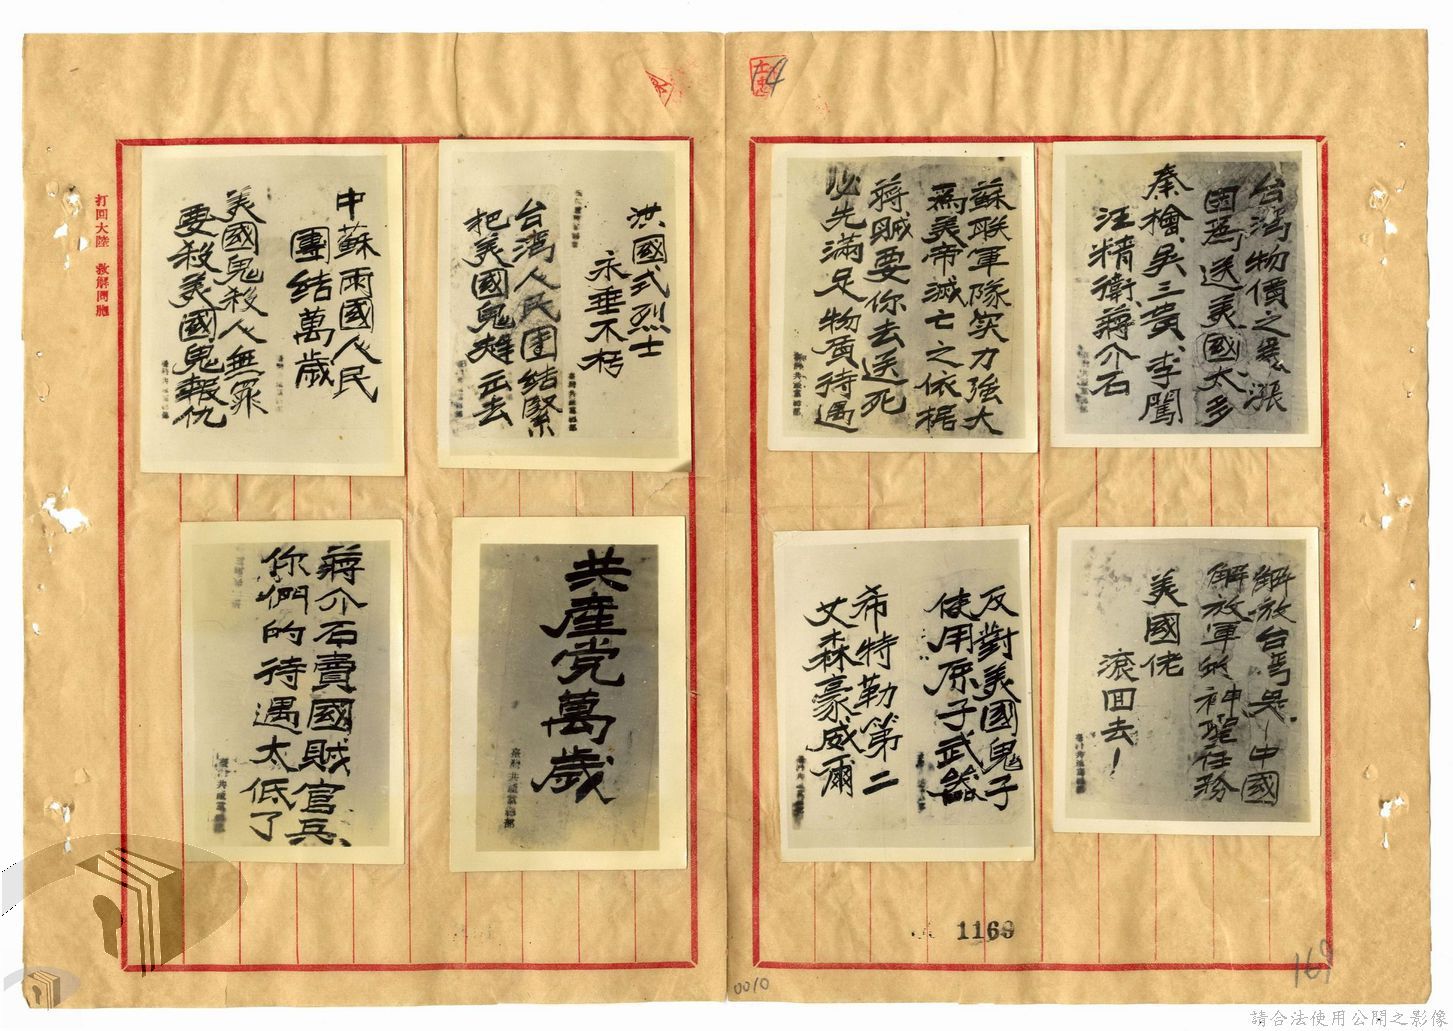 台灣物價之暴漲
因爲送美國太多
秦檜吳三黃李闖
汪精衛蔣介石
蘇聯軍隊实力強大
爲美帝滅亡之依椐
蔣賊要你去送死
必先滿足物质待遇
洪國式烈士
永垂不朽
台湾人民團結緊
把美國鬼趕出去
中蘇兩國人民
團結萬歲
美國鬼殺人無罪
要殺美國鬼報仇
解放台湾是中國
解放軍的神聖任務
美國佬
滾回去!
反對美國鬼子
使用原子武器
希特勒第二
艾森豪威爾
共産党萬歲
臺灣共産黨總部
蔣介石賣國賊官兵
你們的待遇太低了
打回大陸 救解同胞
1169
169
0010
14
請合法使用公開之影像